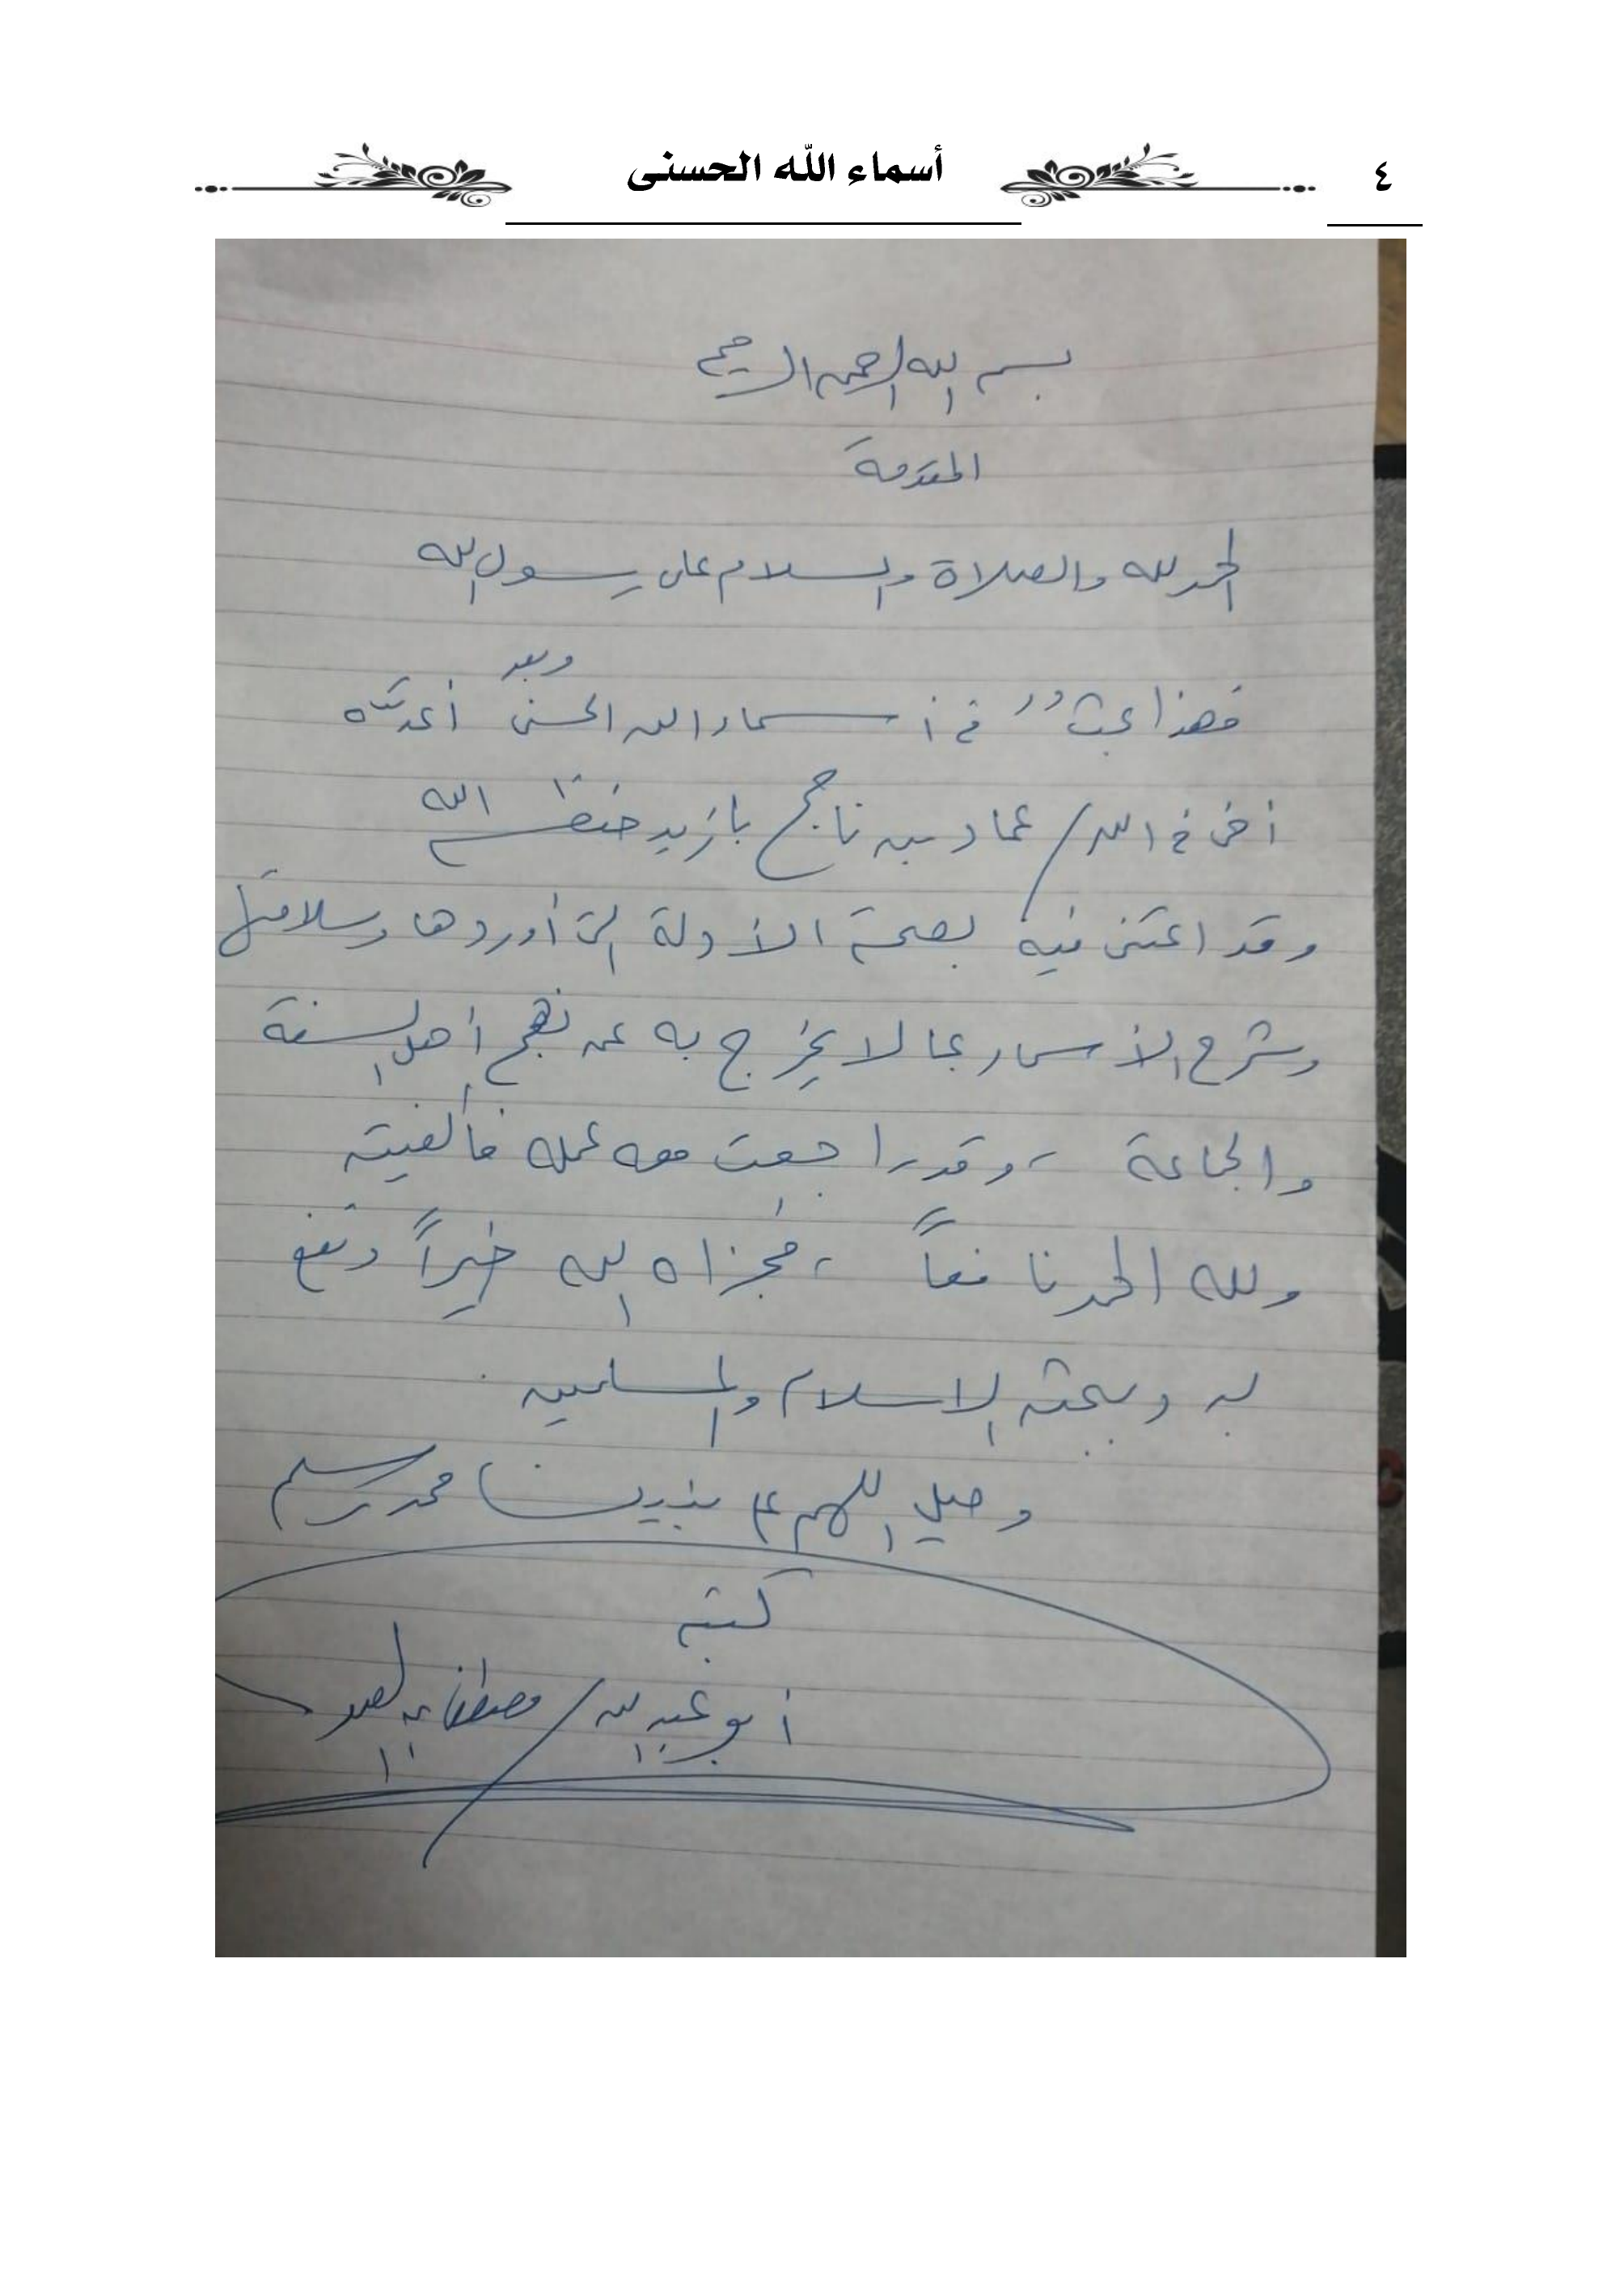 ٤
أسماء الله الحسنى
بسم الله الرحمن الرحيم
المقدمة
الحمد لله والصلاة والسلام على رسول الله
وبعد
فهذا بحثٌ في أسماء الله الحسنى أعده
أخي في الله/ عماد بن ناجح بازيد حفظه الله
وقد اعتنى فيه بصحة الأدلة التي أوردها وسلامتها
وشرح الأسماء بما لا يخرج به عن نهج أهل السنة
والجماعة ، وقد راجعت معه عمله فألفيته
ولله الحمد نافعاً ، فجزاه الله خيراً ونفع
به وببحثه الإسلام والمسلمين
وصلي اللهم على نبينا محمد وسلم
كتبه
أبو عبد الله/ مصطفى بن العدوي